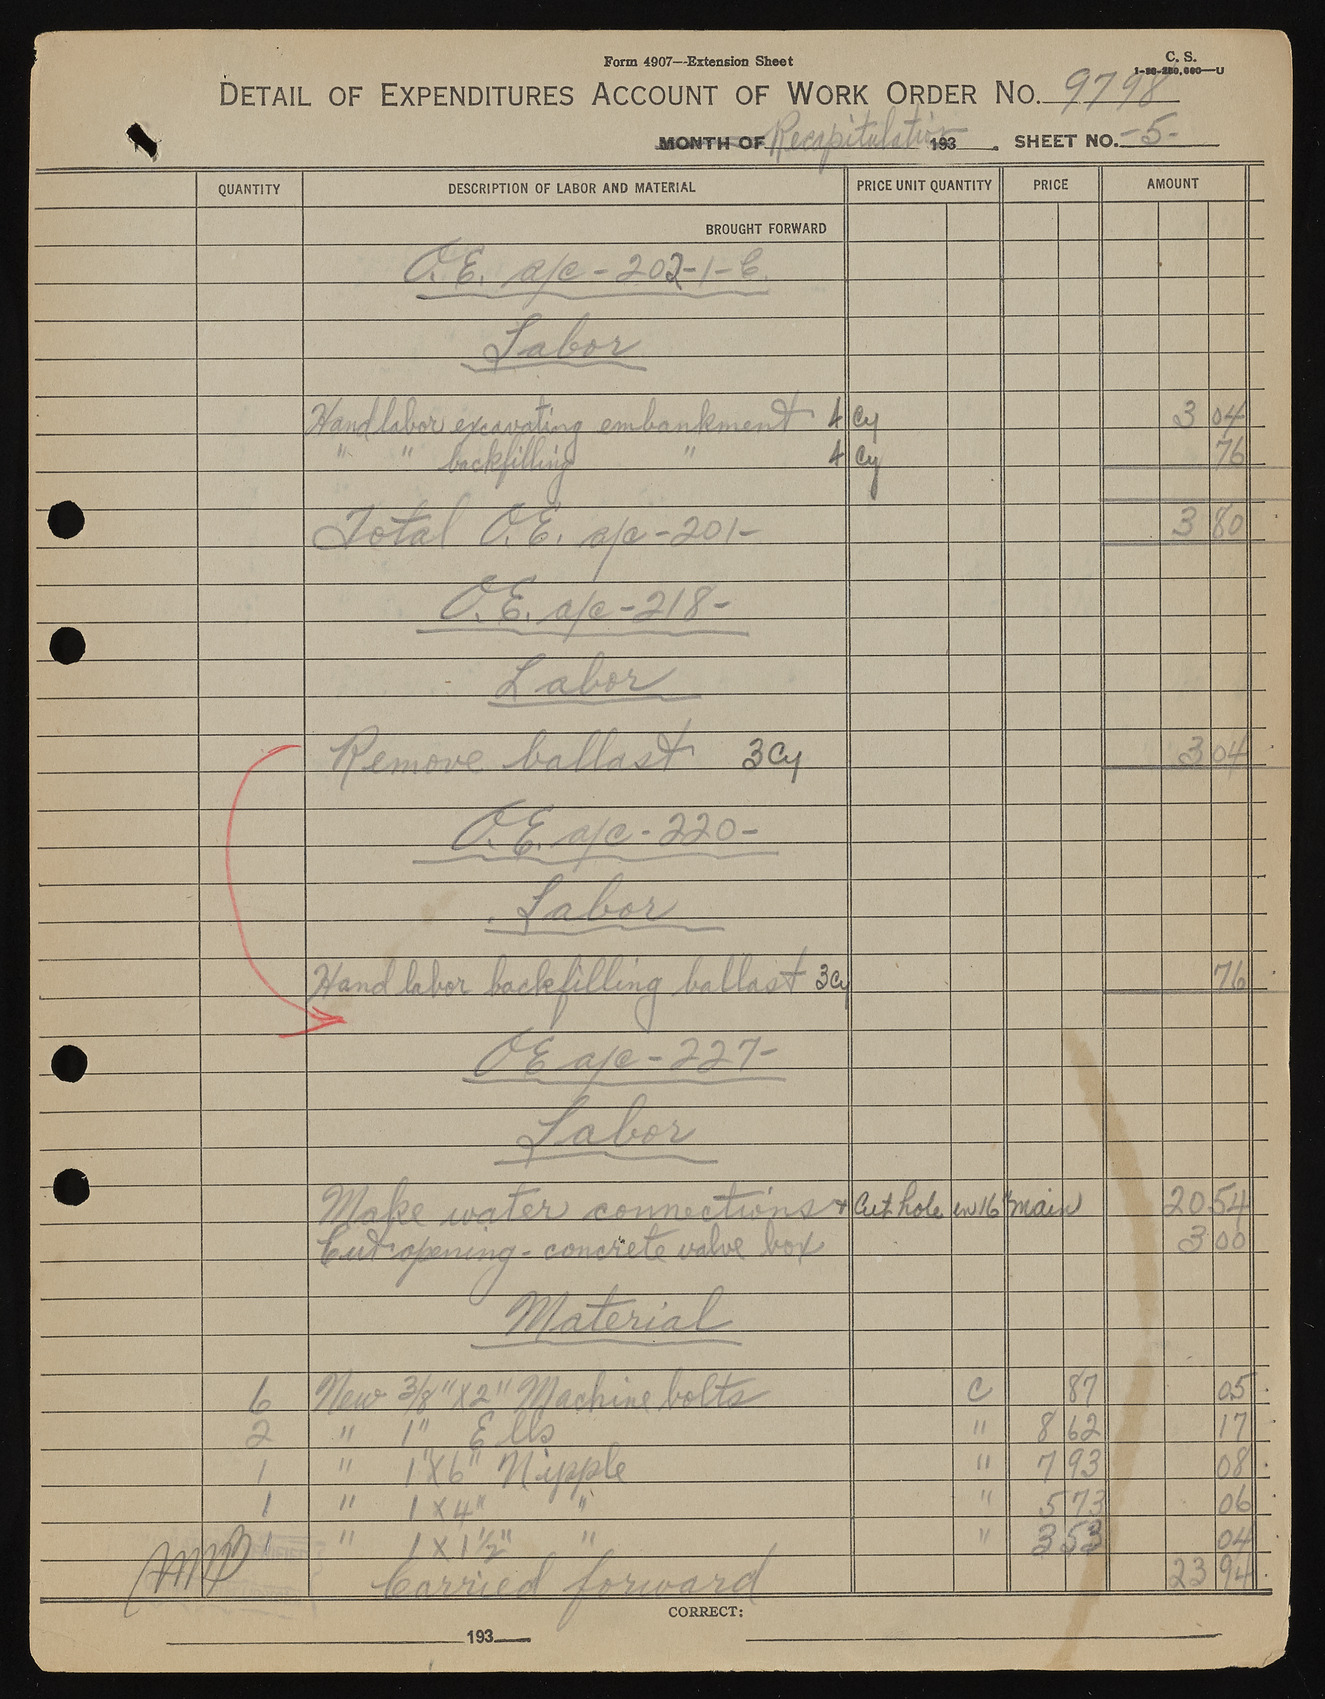 Form 4907—Extension Sheet
C. S.
1-30-250,000—U
DETAIL OF EXPENDITURES ACCOUNT OF WORK ORDER NO. 9798
MONTH OF Recapitulation 193 . SHEET NO. -5-
QUANTITY DESCRIPTION OF LABOR AND MATERIAL PRICE UNIT QUANTITY PRICE AMOUNT
BROUGHT FORWARD
O.E. a/c - 202-1-C.
Labor
Hand labor excavating embankment 4 Cy 3 04
" " backfilling " 4 Cy 76
Total O.E. a/c -201- 3 80
O.E. a/c -218-
Labor
Remove ballast 3 Cy 3 04
O.E. a/c - 220-
Labor
Hand labor backfilling ballast 3 Cy 76
OE a/c - 227-
Labor
Make water connections + Cut hole in 16" main 20 54
Cut opening - concrete valve box 3 00
Material
6 New 3/8" X 2" Machine bolts C 87 05
2 " 1" Ells " 8 62 17
1 " 1" X 6" Nipple " 7 93 08
1 " 1 X 4" " " 5 73 06
1 " 1 X 1 1/2" " " 3 53 04
Carried forward 23 94
CORRECT:
193